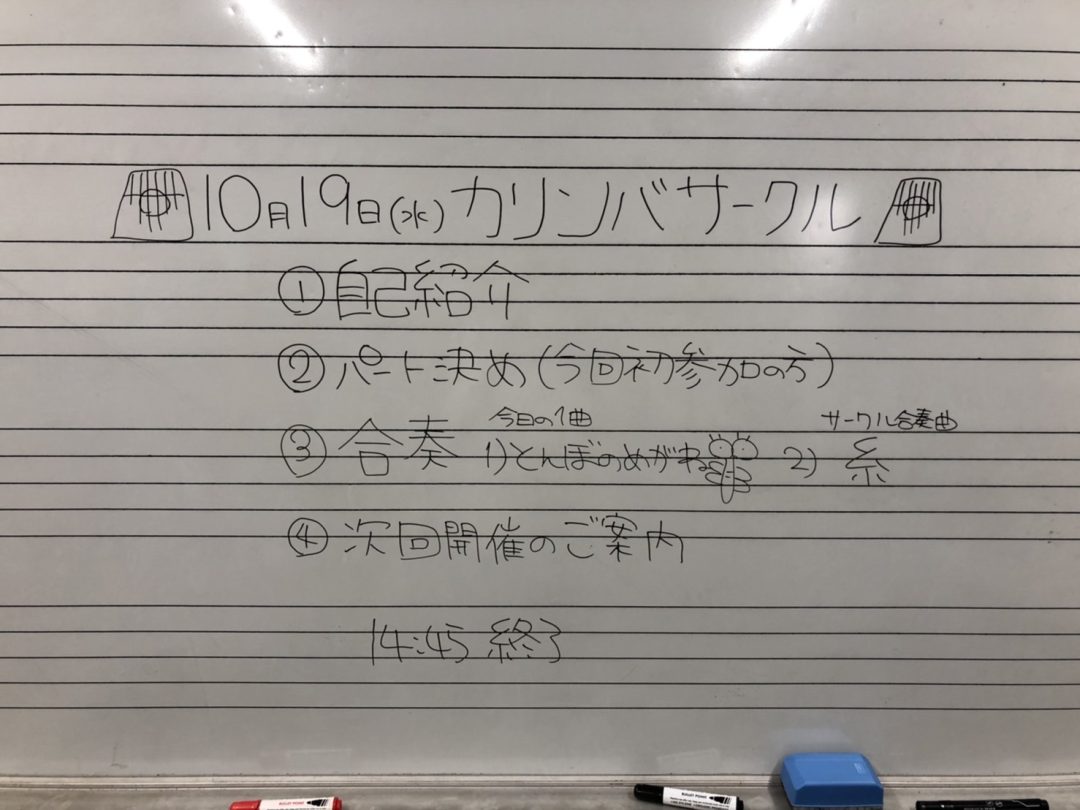 10月19日(水)カリンバサークル
①自己紹介
②パート決め(今回初参加の方)
今日の1曲 サークル合奏曲
③合奏 1)とんぼのめがね 2)糸
④次回開催のご案内
14:45 終了
BULLET POINT
BULLET POINT